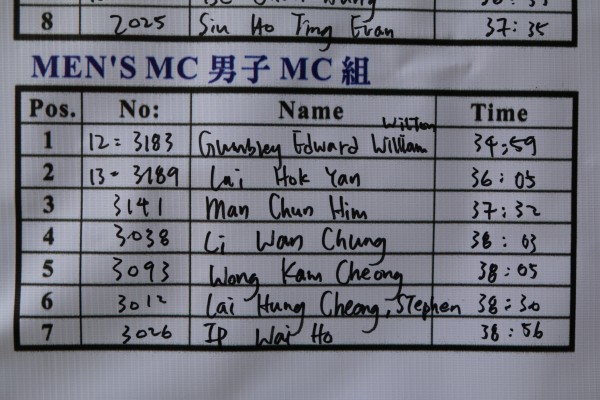 8 2025 Siu Ho Ting Evan 37:35
MEN'S MC 男子 MC 組
Pos. No: Name Time
1 12 = 3183 Gumbley Edward William 34:59
2 13 - 3189 Lai Hok Yan 36:05
3 3141 Man Chun Him 37:32
4 3038 Li Wan Chung 38:03
5 3093 Wong Kam Cheong 38:05
6 3012 Lai Hung Cheong, Stephen 38:30
7 3026 IP Wai Ho 38:56